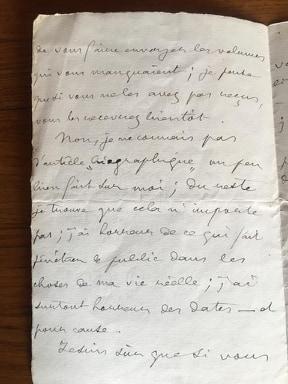 de vous faire envoyer les volumes
qui vous manquaient ; je pense
que si vous ne les avez pas reçus,
vous les recevrez bientôt.
Non, je ne connais pas
l'article "biographique" un peu
bien fait sur moi ; du reste
je trouve que cela n'importe
pas ; j'ai horreur de ce qui fait
pénétrer le public dans les
choses de ma vie réelle ; j'ai
surtout horreur des dates — et
pour cause.
sûr que si vous